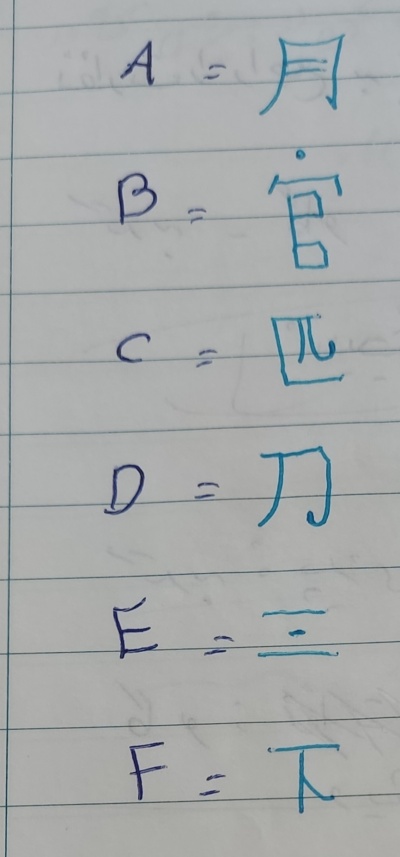 A = 月
B = 官
C = 匹
D = 刀
E = 三
F = 下